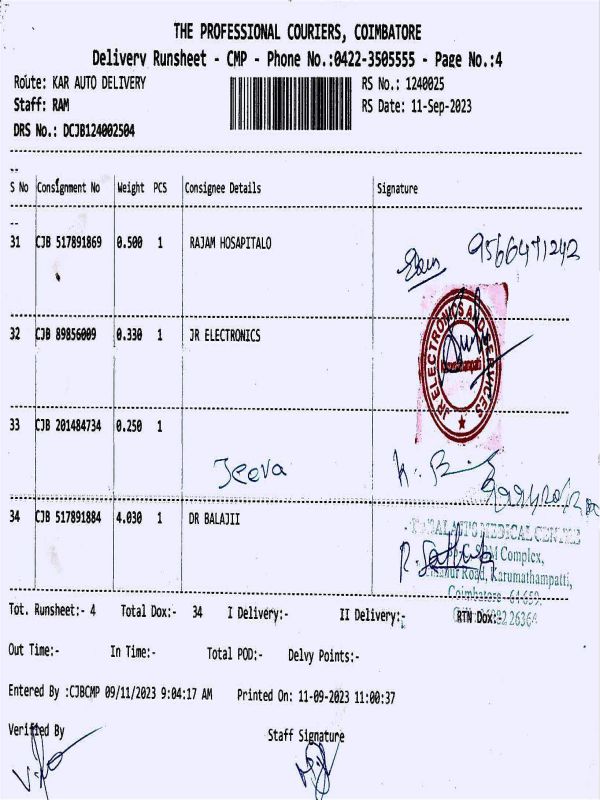 THE PROFESSIONAL COURIERS, COIMBATORE
Delivery Runsheet - CMP - Phone No.:0422-3505555 - Page No.:4
Route: KAR AUTO DELIVERY
RS No.: 1240025
Staff: RAM
RS Date: 11-Sep-2023
DRS No.: DCJB124002504
S No Consignment No Weight PCS Consignee Details Signature
31 CJB 517891869 0.500 1 RAJAM HOSAPITALO
32 CJB 89856009 0.330 1 JR ELECTRONICS
JR ELECTRONICS AND SERVICES
33 CJB 201484734 0.250 1
Jeeva
34 CJB 517891884 4.030 1 DR BALAJII
BALAJI'S MEDICAL CENTRE
Complex,
Road, Karumathampatti,
Coimbatore
Tot. Runsheet:- 4 Total Dox:- 34 I Delivery:- II Delivery:- RTN Dox:-
Out Time:- In Time:- Total POD:- Delvy Points:-
Entered By :CJBCMP 09/11/2023 9:04:17 AM Printed On: 11-09-2023 11:00:37
Verified By Staff Signature